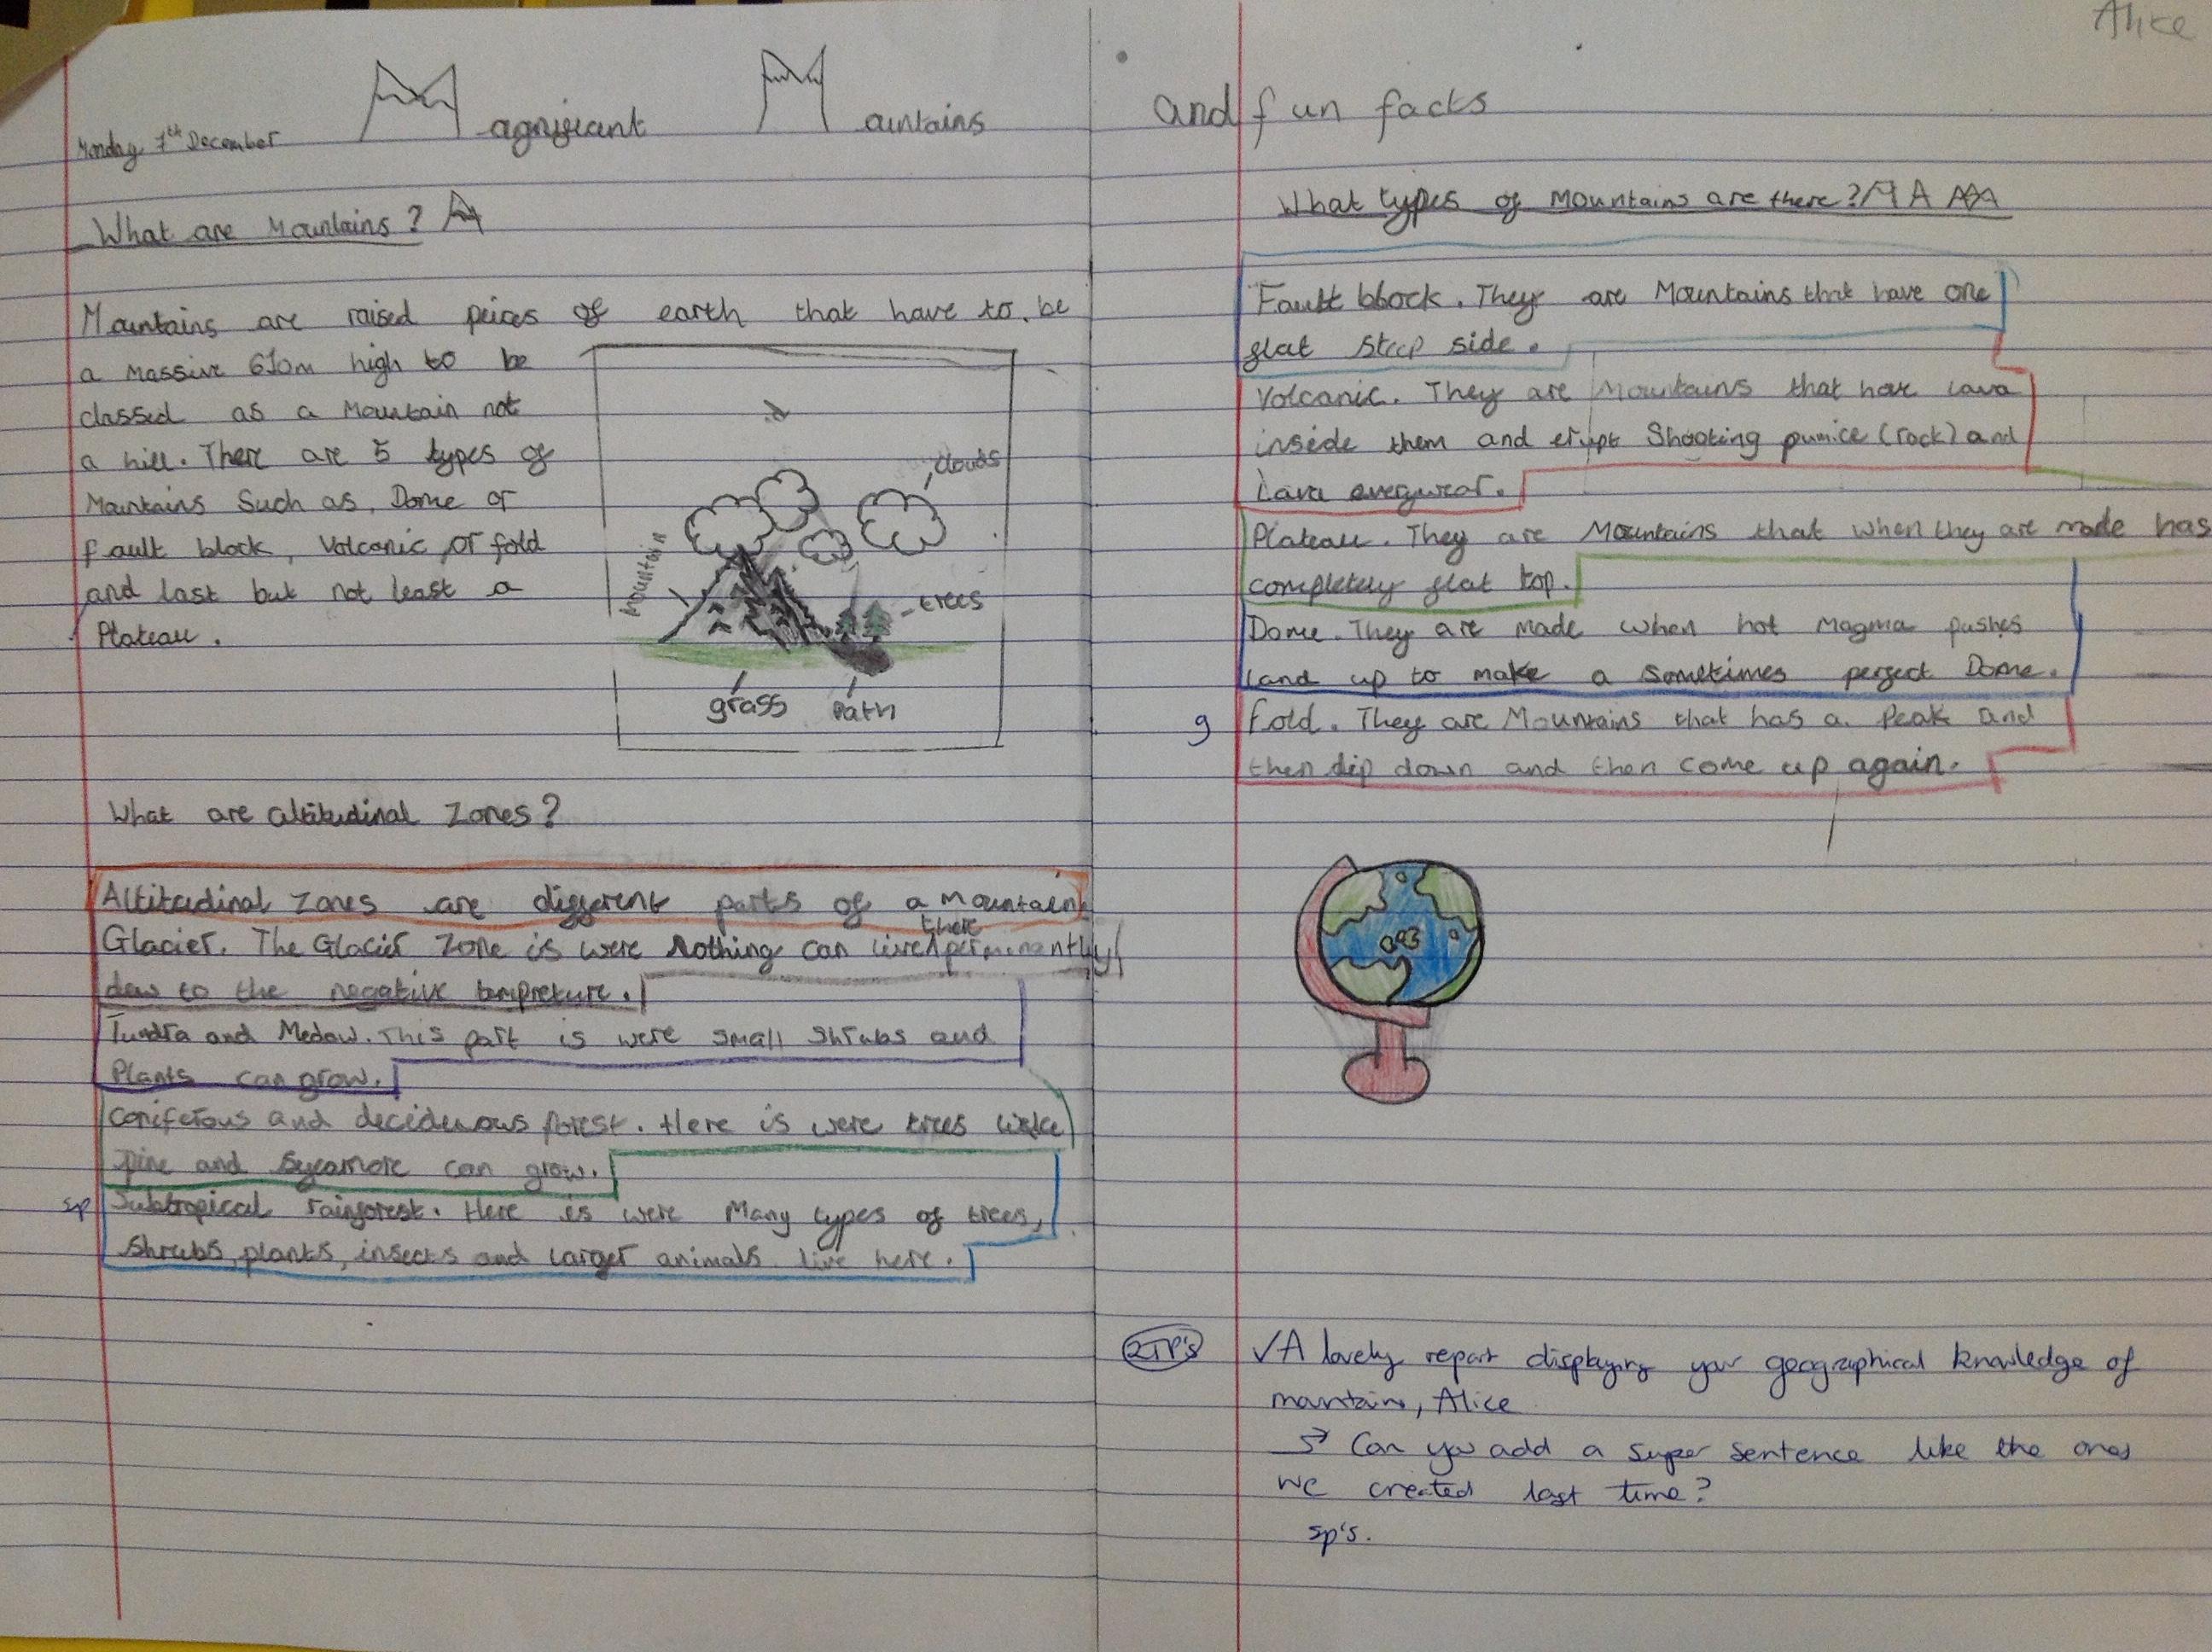 Alice
Monday 7th December
Magnificant Mountains and fun facts
What are Mountains?
Mountains are raised peices of earth that have to be
a massive 610m high to be
classed as a Mountain not
a hill. There are 5 types of
Mountains Such as, Dome or
fault block, Volcanic, or fold
and last but not least a
Plateau.
clouds
mountain
trees
grass
Path
What are altitudinal Zones?
Altitudinal Zones are different parts of a Mountain
there
Glacier. The Glacier Zone is were Nothing can live perminantly
dew to the negative tempreture.
Tundra and Medow. This part is were small Shrubs and
Plants can grow.
Coniferous and deciduous forest. Here is were trees like
Pine and Sycamore can grow.
sp
Subtropical rainforest. Here is were Many types of trees,
Shrubs, plants, insects and larger animals live here.
What types of Mountains are there?
Fault block. They are Mountains that have one
flat steep side.
Volcanic. They are Mountains that have lava
inside them and erupt Shooting pumice (rock) and
Lava everywear.
Plateau. They are Mountains that when they are made has
completely flat top.
Dome. They are made when hot Magma pushes
land up to make a Sometimes perfect Dome.
g
Fold. They are Mountains that has a Peak and
then dip down and then come up again.
2TP's
✓A lovely report displaying your geographical knowledge of
mountains, Alice
→ Can you add a super sentence like the ones
we created last time?
sp's.